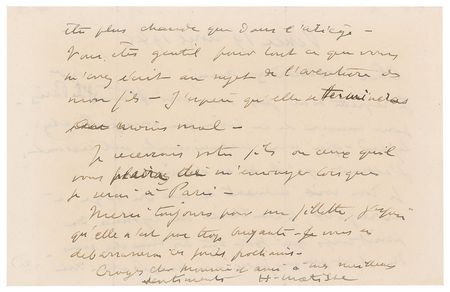 être plus chaude que dans l'atiège -
Vous êtes gentil pour tout ce que vous
m'avez écrit au sujet de l'aventure de
mon fils - J'espère qu'elle se terminera
moins mal -
Je recevrai votre fils ou ceux qu'il
vous plaira de m'envoyer lorsque
je serai à Paris -
Merci toujours pour ma fillette, j'espère
qu'elle n'est pas trop bruyante - Je vous en
débarrasserai ces jours prochains -
Croyez cher Monsieur et ami à mes meilleurs
sentiments H-matisse